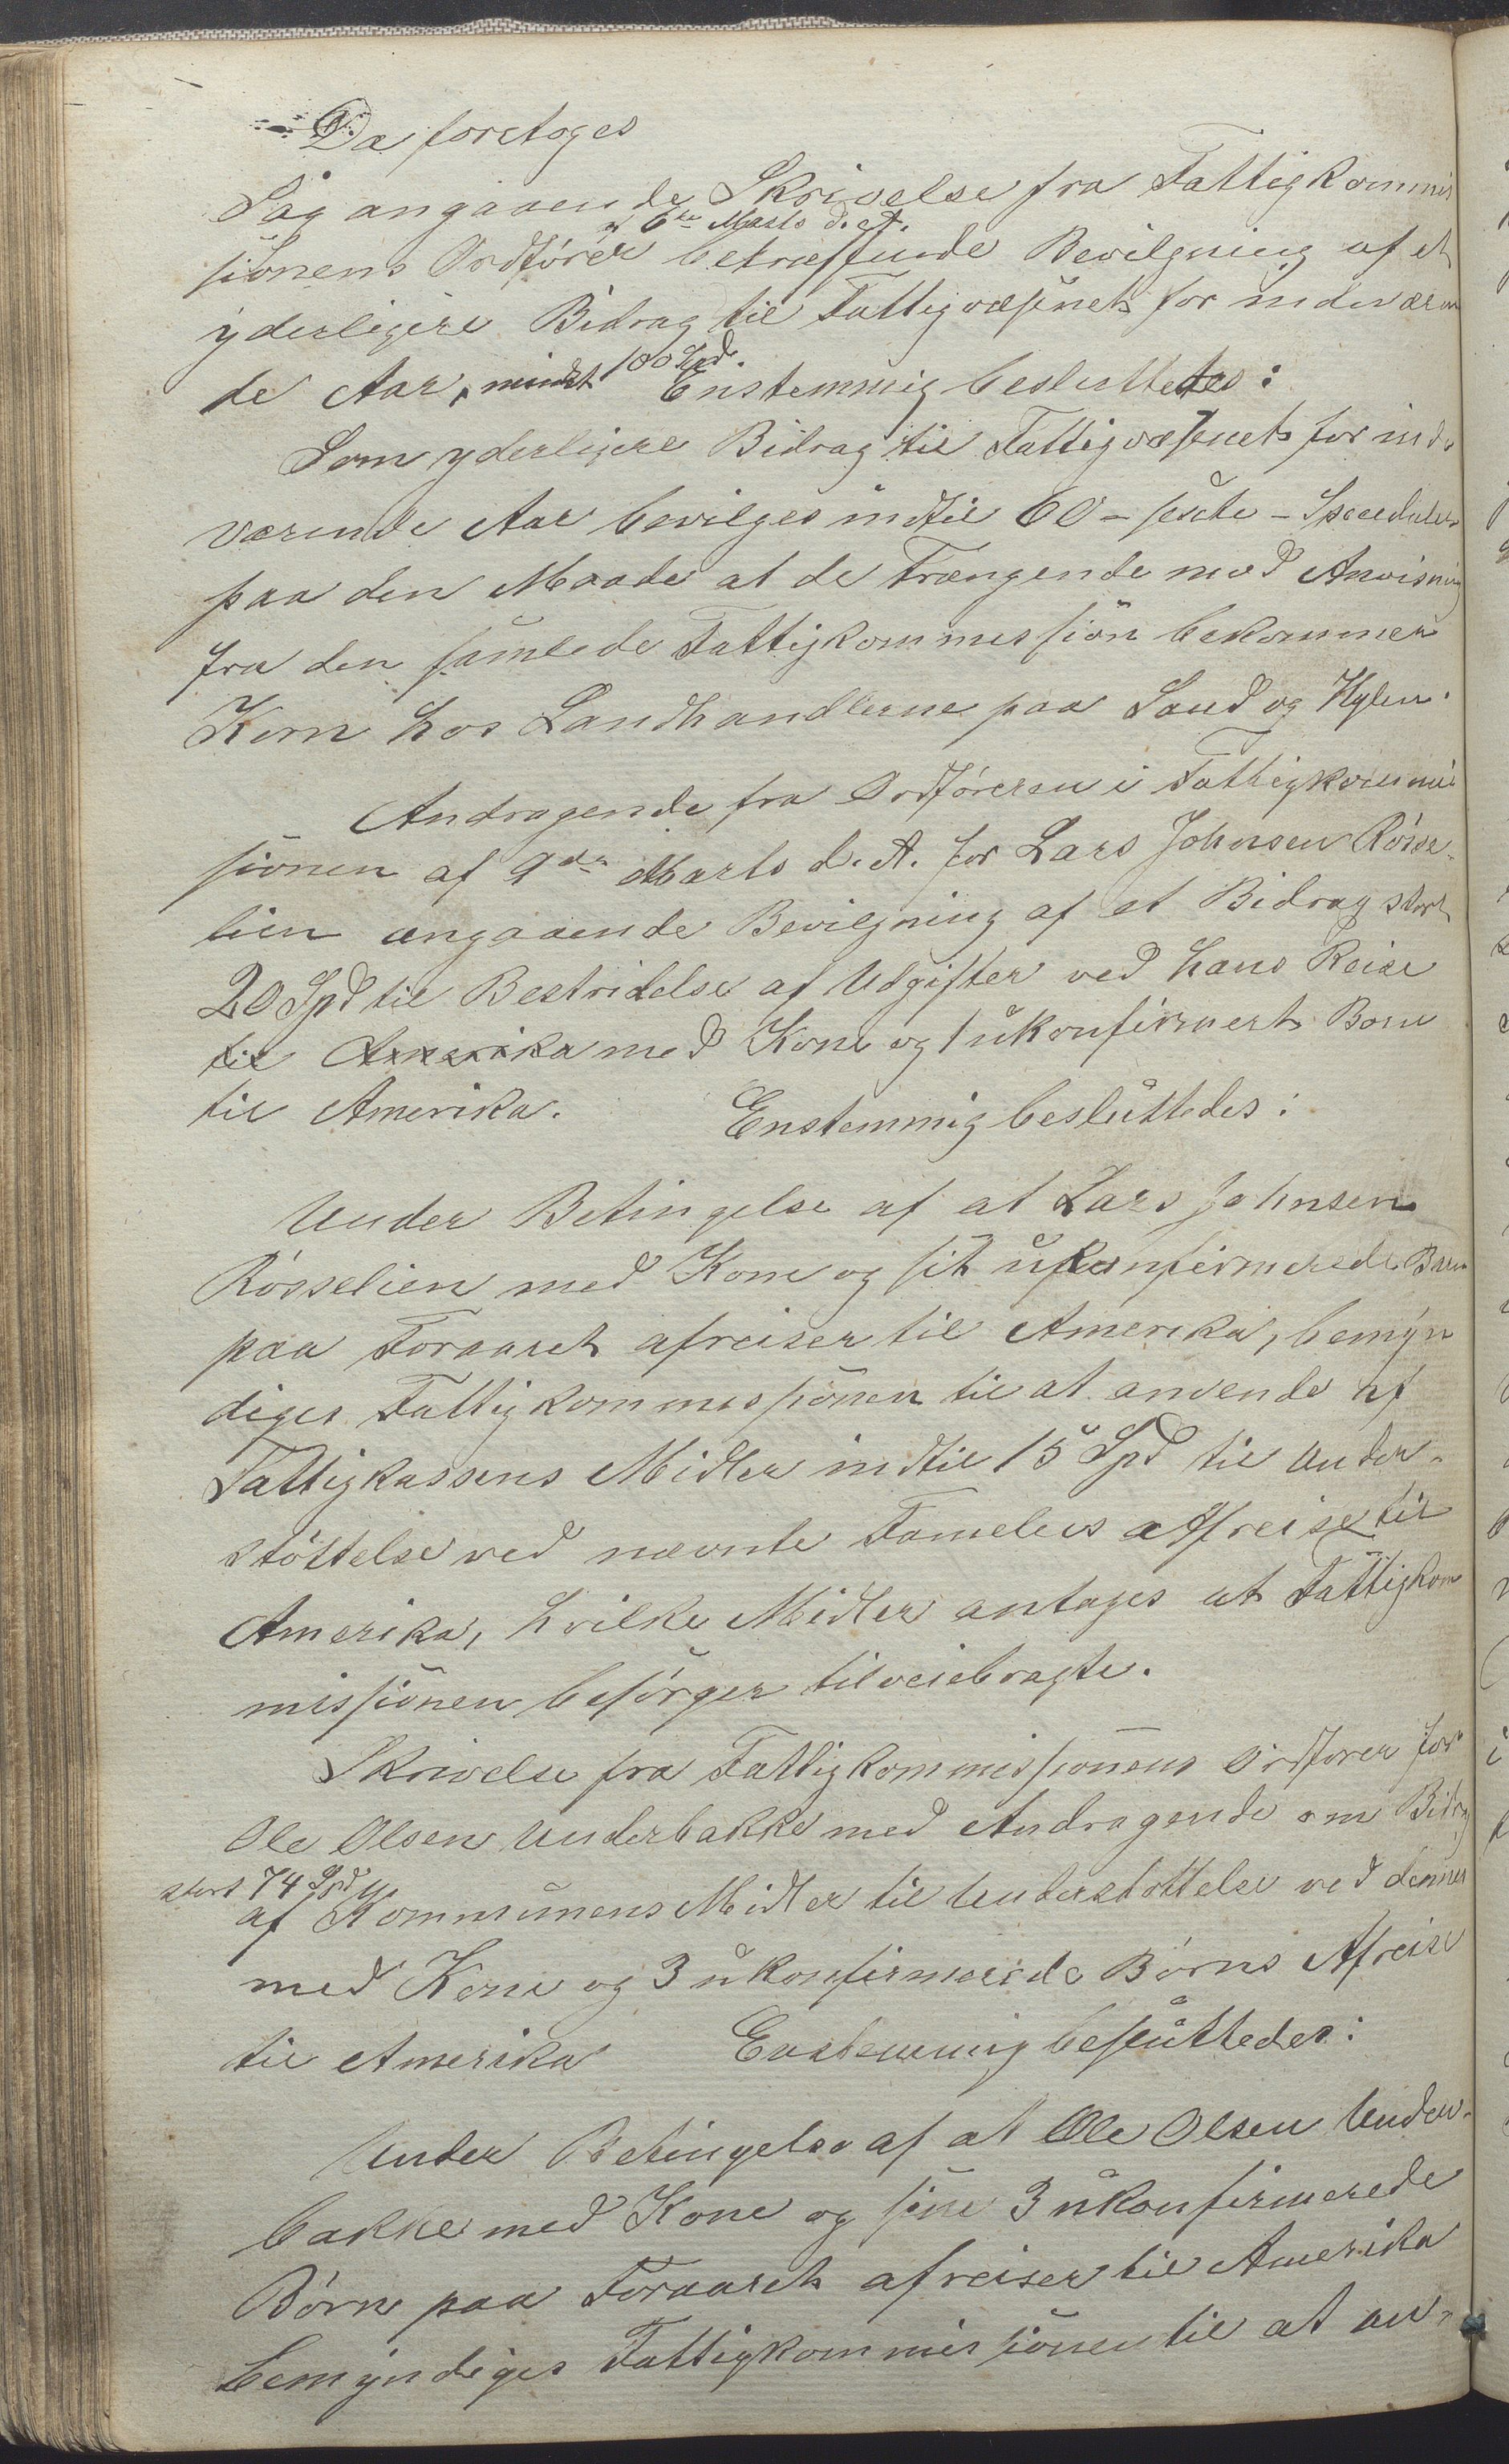 Da foretoges
Sag angaaende Skrivelse fra Fattigkommis
af 6te Marts d. A.
sionens Ordfører betræffende Bevilgning af et
yderligere Bidrag til Fattigvæsenet for indeværen
de Aar, mindst 100 Spd. Enstemmig besluttedes:
Som yderligere Bidrag til Fattigvæsenet for inde
værende Aar bevilges indtil 60 – sexti – Speciedaler
paa den Maade at de Trængende med Anvisning
fra den samlede Fattigkommission bekommer
Korn hos Landhandlerne paa Sand og Hylen.
Andragende fra Ordføreren i Fattigkommis
sionen af 9de Marts d. A. for Lars Johnsen Røsse-
lien angaaende Bevilgning af et Bidrag stort
20 Spd til Bestridelse af Udgifter ved hans Reise
til Amerika med Kone og 1 ukonfirmert Barn
til Amerika. Enstemmig besluttedes:
Under Betingelse af at Lars Johnsen
Røsselien med Kone og sit ukonfirmerede Barn
paa Foraaret afreiser til Amerika, bemyn
diges Fattigkommissionen til at anvende af
Fattigkassens Midler indtil 15 Spd til Under-
støttelse ved nævnte Families Afreise til
Amerika, hvilke Midler antages at Fattigkom
missionen besørger tilveiebragte.
Skrivelse fra Fattigkommissionens Ordfører for
Ole Olsen Underbakke med Andragende om Bidrag
stort 74 Spd
af Kommunens Midler til Understøttelse ved dennes
med Kone og 3 ukonfirmerede Børns Afreise
til Amerika Enstemmig besluttedes:
Under Betingelse af at Ole Olsen Under-
bakke med Kone og sine 3 ukonfirmerede
Børn paa Foraaret afreiser til Amerika
bemyndiges Fattigkommissionen til at an-